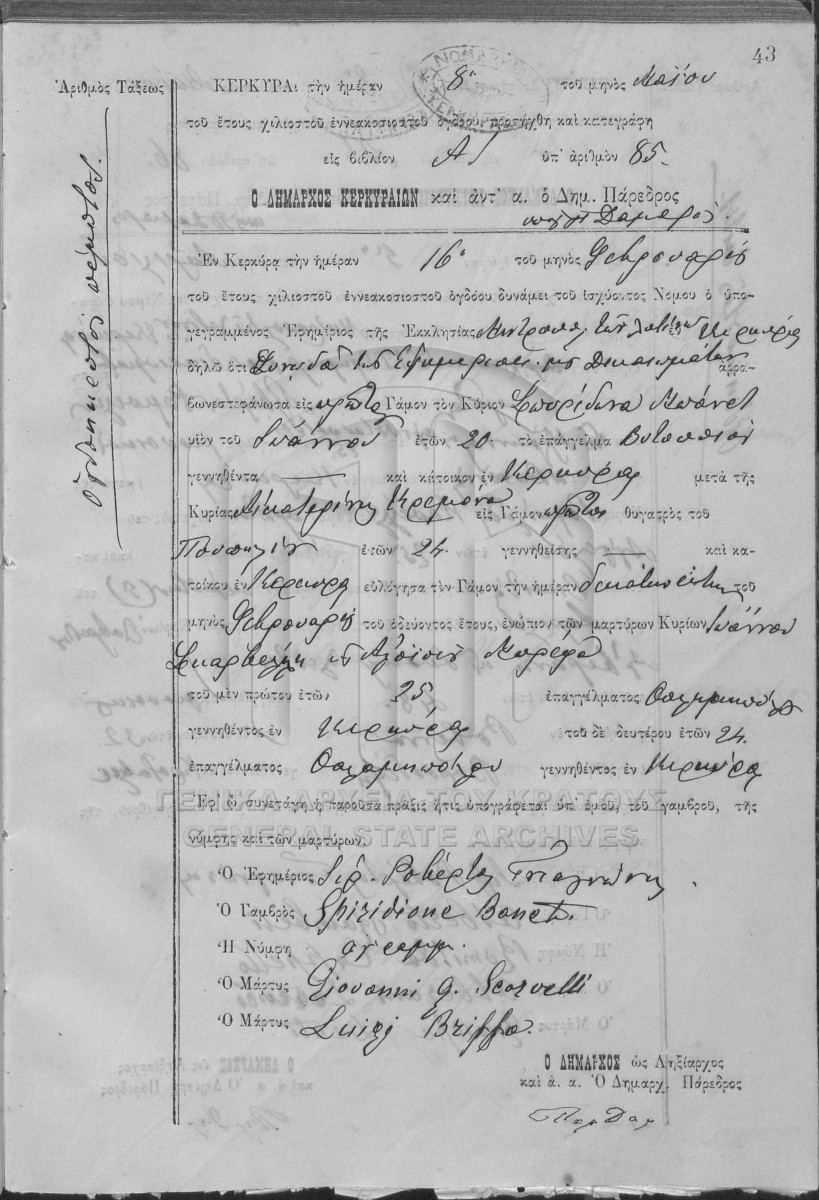 43
Ἀριθμὸς Τάξεως
Ὀγδοηκοστὸς πέμπτος.
ΚΕΡΚΥΡΑι τὴν ἡμέραν 8ῃ τοῦ μηνὸς Μαΐου
τοῦ ἔτους χιλιοστοῦ ἐννεακοσιοστοῦ ὀγδόου προσήχθη καὶ κατεγράφη
εἰς βιβλίον ΑΓ ὑπ' ἀριθμὸν 85.
Ὁ ΔΗΜΑΡΧΟΣ ΚΕΡΚΥΡΑΙΩΝ καὶ ἀντ' α. ὁ Δημ. Πάρεδρος
Ἐν Κερκύρᾳ τὴν ἡμέραν 16ῃ τοῦ μηνὸς Φεβρουαρίου
τοῦ ἔτους χιλιοστοῦ ἐννεακοσιοστοῦ ὀγδόου δυνάμει τοῦ ἰσχύοντος Νόμου ὁ ὑπο-
γεγραμμένος Ἐφημέριος τῆς Ἐκκλησίας Μητροπόλ. τῶν Λατίνων ἐν Κερκύρᾳ
δηλῶ ὅτι ἀρρα-
βωνεστεφάνωσα εἰς πρῶτον Γάμον τὸν Κύριον Σπυρίδωνα Μπόνετ
υἱὸν τοῦ Ἰωάννου ἐτῶν 20. τὸ ἐπάγγελμα Βυτοποιὸν
γεννηθέντα — καὶ κάτοικον ἐν Κερκύρᾳ μετὰ τῆς
Κυρίας Αἰκατερίνης Κρεμόνα εἰς Γάμον πρῶτον θυγατρὸς τοῦ
ἐτῶν 24. γεννηθείσης — καὶ κα-
τοίκου ἐν Κερκύρᾳ εὐλόγησα τὸν Γάμον τὴν ἡμέραν δεκάτην ἕκτην τοῦ
μηνὸς Φεβρουαρίου τοῦ ὁδεύοντος ἔτους, ἐνώπιον τῶν μαρτύρων Κυρίων Ἰωάννου
Σκαρβέλλη κ Ἀλοϊσίου Μπρίφα
τοῦ μὲν πρώτου ἐτῶν 25 ἐπαγγέλματος Θαλαμηπόλου
γεννηθέντος ἐν Κερκύρᾳ τοῦ δὲ δευτέρου ἐτῶν 24.
ἐπαγγέλματος Θαλαμηπόλου γεννηθέντος ἐν Κερκύρᾳ
Ἐφ' ᾧ συνετάγη ἡ παροῦσα πρᾶξις ἥτις ὑπογράφεται ὑπ' ἐμοῦ, τοῦ γαμβροῦ, τῆς
ΓΕΝΙΚΑ ΑΡΧΕΙΑ ΤΟΥ ΚΡΑΤΟΥΣ
GENERAL STATE ARCHIVES
νύμφης καὶ τῶν μαρτύρων.
Ὁ Ἐφημέριος
Ὁ Γαμβρὸς Spiridione Bonet.
Ἡ Νύμφη ἀγράμμ.
Ὁ Μάρτυς Giovanni G. Scarvelli
Ὁ Μάρτυς Luigi Briffa.
Ὁ ΔΗΜΑΡΧΟΣ ὡς Ληξίαρχος
καὶ ἀ. α. Ὁ Δημαρχ. Πάρεδρος